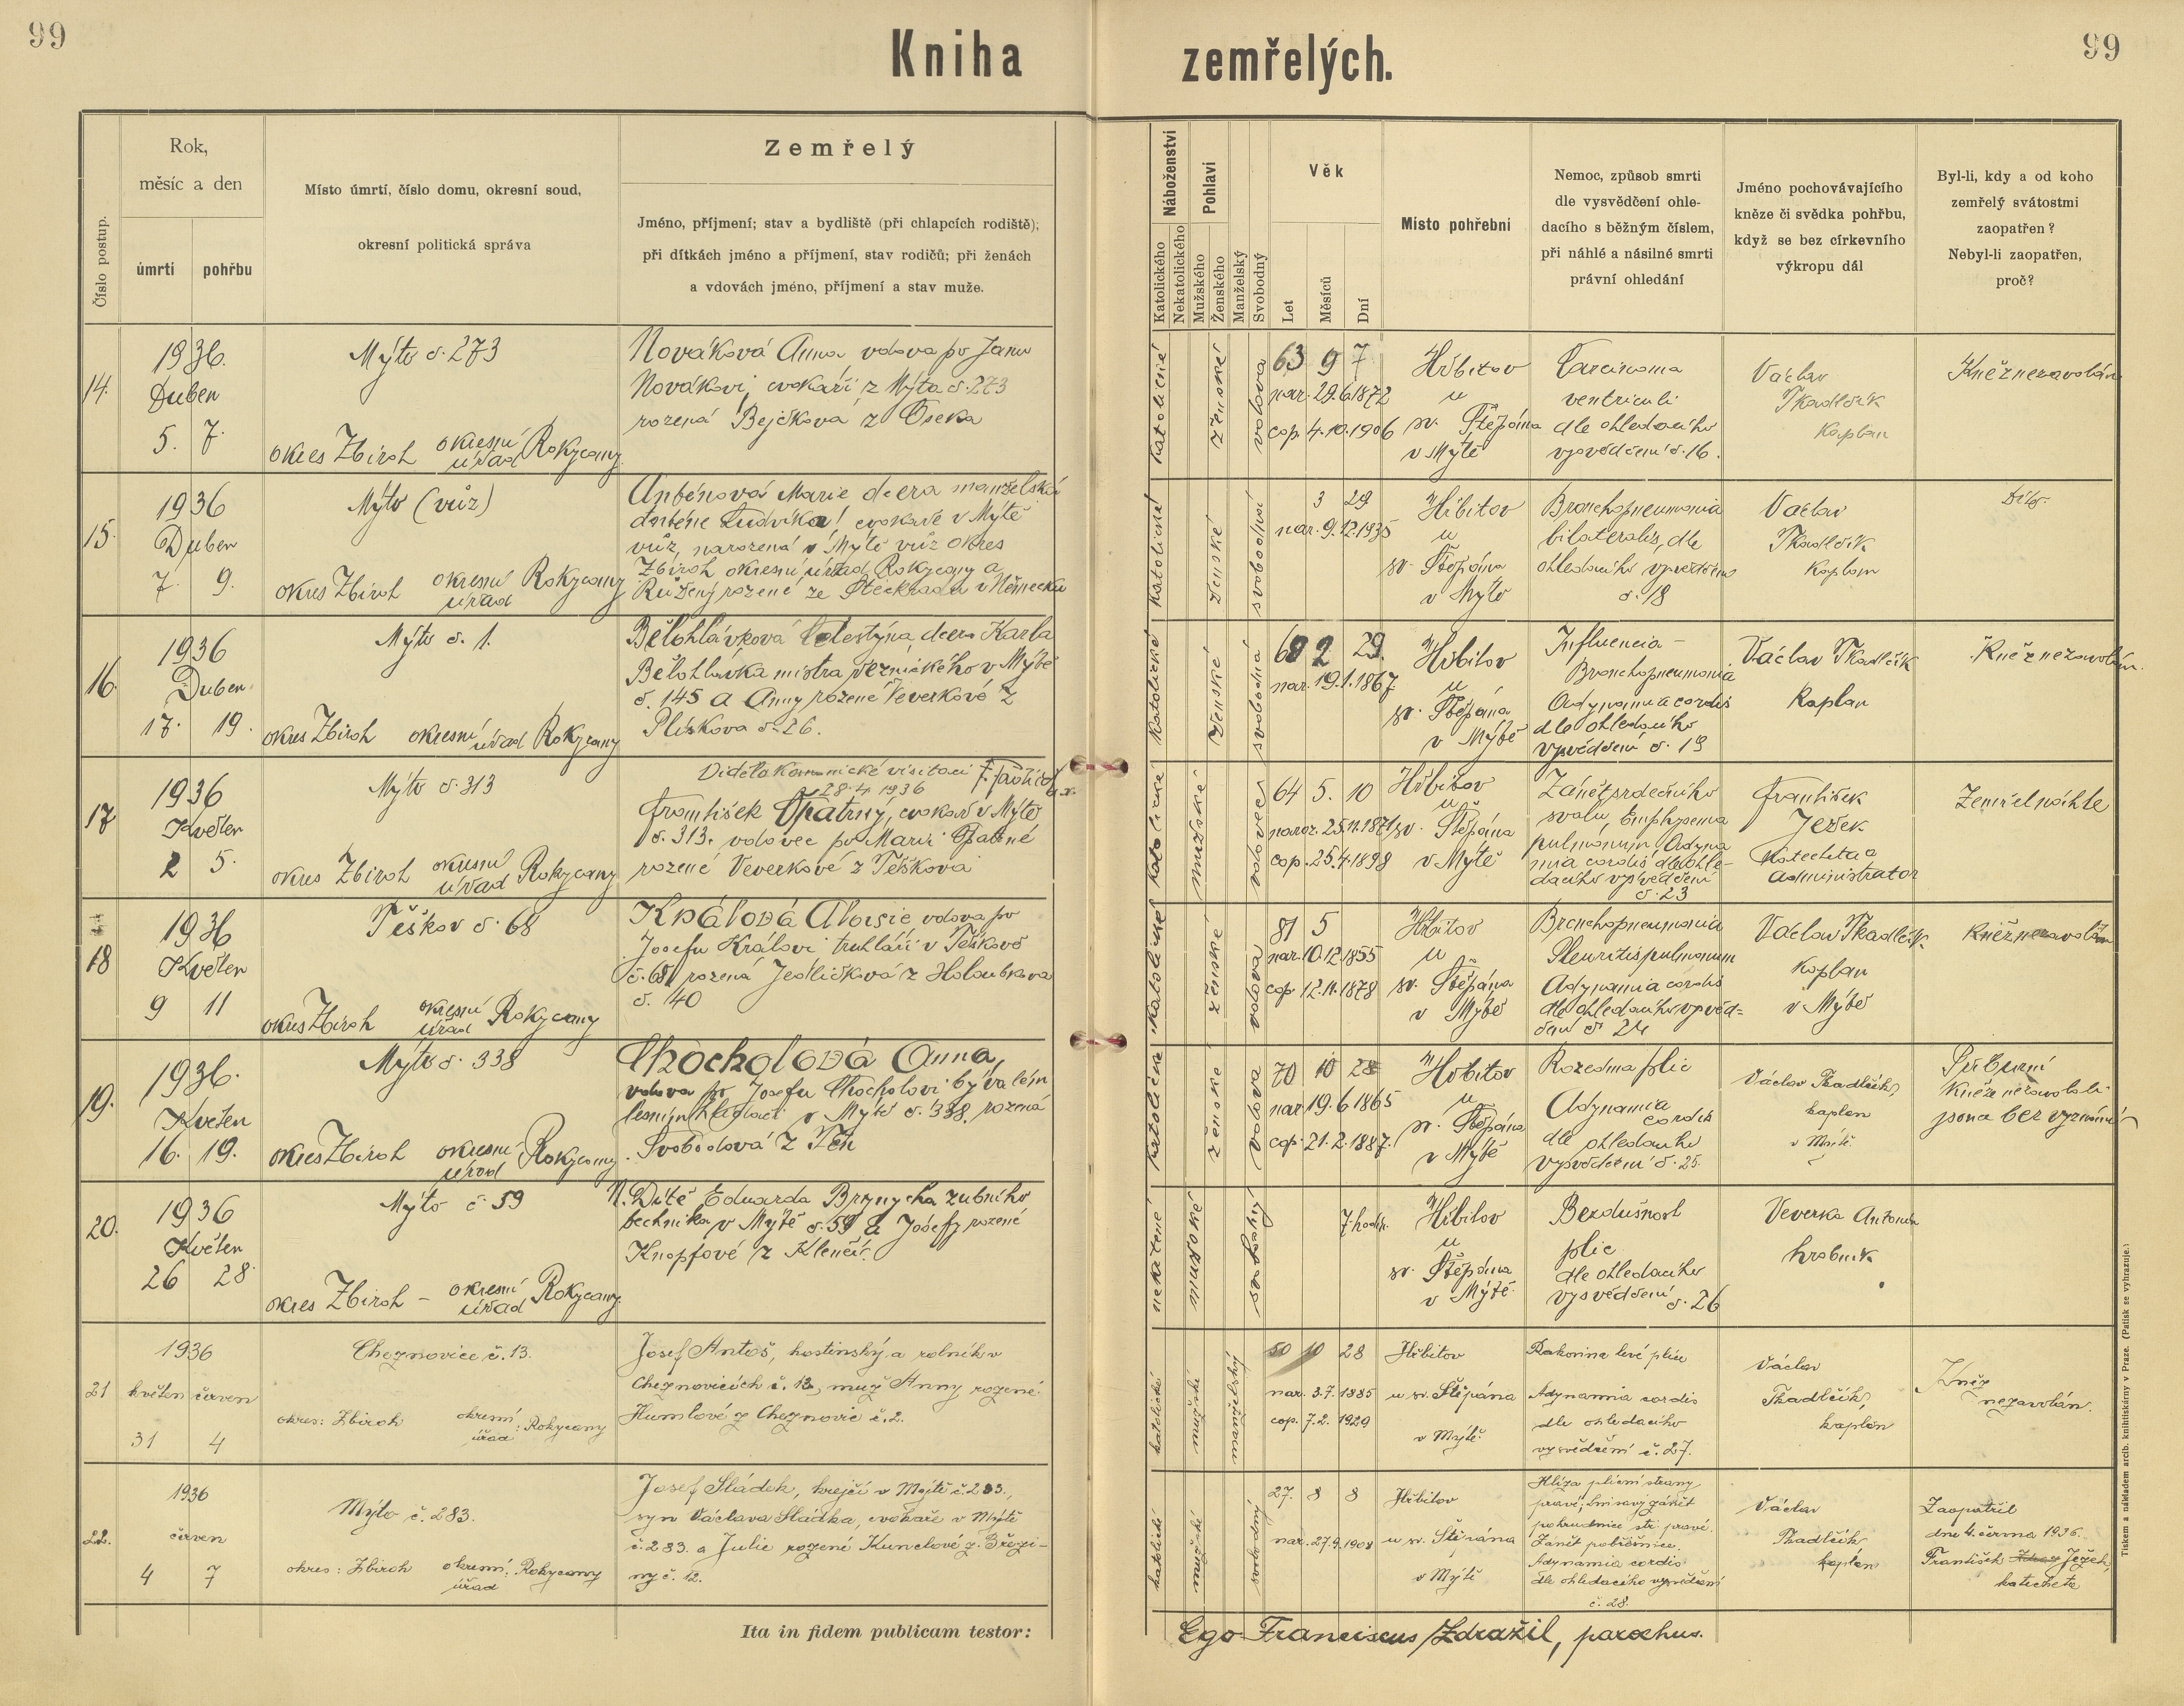 99
Kniha zemřelých.
99
Číslo postup.
Rok,
měsíc a den
úmrtí
pohřbu
Místo úmrtí, číslo domu, okresní soud,
okresní politická správa
Zemřelý
Jméno, příjmení; stav a bydliště (při chlapcích rodiště);
při dítkách jméno a příjmení, stav rodičů; při ženách
a vdovách jméno, příjmení a stav muže.
Náboženství
Katolického
Nekatolického
Pohlaví
Mužského
Ženského
Manželský
Svobodný
Věk
Let
Měsíců
Dní
Místo pohřební
Nemoc, způsob smrti
dle vysvědčení ohle-
dacího s běžným číslem,
při náhlé a násilné smrti
právní ohledání
Jméno pochovávajícího
kněze či svědka pohřbu,
když se bez církevního
výkropu dál
Byl-li, kdy a od koho
zemřelý svátostmi
zaopatřen?
Nebyl-li zaopatřen,
proč?
14.
1936.
Duben
5. 7.
Mýto č. 273
okres Zbiroh okresní úřad Rokycany
Nováková Anna vdova po Janu
Novákovi, cvokaři z Mýta č. 273
rozená Bejčková z Oseka
katolické
ženské
vdova
63 9 7
nar. 29.6.1872
cop. 4.10.1906
Hřbitov
u
sv. Štěpána
v Mýtě
Carcinoma
ventriculi
dle ohledacího
vysvědčení č. 16.
Václav
Tkadlčík
kaplan
Kněz nezavolán
15.
1936
Duben
7. 9.
Mýto (vůz)
okres Zbiroh okresní úřad Rokycany
Marie dcera manželská
cvokaře v Mýtě
vůz, narozená v Mýtě vůz okres
Zbiroh okresní úřad Rokycany a
Růženy rozené ze v Německu
katolické
ženské
svobodná
3 29
nar. 9.12.1935
Hřbitov
u
sv. Štěpána
v Mýtě
Bronchopneumonia
bilateralis, dle
ohledacího vysvědčení
č. 18
Václav
Tkadlčík
kaplan
Dítě.
16.
1936
Duben
17. 19.
Mýto č. 1.
okres Zbiroh okresní úřad Rokycany
Bělohlávková Celestýna, dcera Karla
Bělohlávka mistra řeznického v Mýtě
č. 145 a Anny rozené Veverkové z
Plískova č. 26.
katolické
ženské
svobodná
2 29.
nar. 19.1.1867
Hřbitov
u
sv. Štěpána
v Mýtě
Influencia –
Bronchopneumonia
Adynamia cordis
dle ohledacího
vysvědčení č. 19
Václav Tkadlčík
kaplan
Kněz nezavolán.
17
1936
Květen
2 5.
Mýto č. 313
okres Zbiroh okresní úřad Rokycany
28. 4. 1936
František Opatrný, cvokař v Mýtě
č. 313. vdovec po Marii Opatrné
rozené Veverkové z Těškova
katolické
mužské
vdovec
64 5. 10
naroz. 25.11.1871
cop. 25.4.1898
Hřbitov
u
sv. Štěpána
v Mýtě
Zánět srdečního
svalu, Emphysema
pulmonum Adyna
mia cordis dle ohle-
dacího vysvědčení
č. 23
František
Ježek
katecheta a
administrator
Zemřel náhle
18
1936
Květen
9 11
Těškov č. 68
okres Zbiroh okresní úřad Rokycany
Králová Aloisie, vdova po
Josefu Královi truhláři v Těškově
č. 68 rozená Jedličková z Holoubkova
č. 40
katolické
ženské
vdova
81 5
nar. 10.12.1855
cop. 12.11.1878
Hřbitov
u
sv. Štěpána
v Mýtě
Bronchopneumonia
Pleuritis pulmonum
Adynamia cordis
dle ohledacího vysvěd-
čení č. 24
Václav Tkadlčík
kaplan
v Mýtě
Kněz nezavolán
19.
1936.
Květen
16. 19.
Mýto č. 338
okres Zbiroh okresní úřad Rokycany
Chocholová Anna,
vdova po Josefu Chocholovi bývalém
lesním v Mýtě č. 338, rozená
Svobodová z Těň
katolické
ženské
vdova
70 10 28
nar. 19.6.1865
cop. 21.2.1887.
Hřbitov
u
sv. Štěpána
v Mýtě
Rozedma plic
Adynamia
cordis
dle ohledacího
vysvědčení č. 25.
Václav Tkadlčík,
kaplan
v Mýtě
Příbuzní
kněze nezavolali
jsouc bez vyznání
20.
1936
Květen
26 28.
Mýto č 59
okres Zbiroh – okresní úřad Rokycany
N. Dítě Eduarda Brynycha zubního
technika v Mýtě č. 59 a Josefy rozené
Knopfové z Klenčí.
nekřtené
mužské
svobodný
7 hodin
Hřbitov
u
sv. Štěpána
v Mýtě
Bezdušnost
plic
dle ohledacího
vysvědčení č. 26
Veverka Antonín
hrobník
21
1936
květen červen
31 4
Cheznovice č. 13.
okres: Zbiroh okresní úřad: Rokycany
Josef Antoš, hostinský a rolník v
Cheznovicích č. 13, muž Anny rozené
Humlové z Cheznovic č. 2.
katolické
mužské
manželský
50 10 28
nar. 3.7.1885
cop. 7.2. 1929
Hřbitov
u sv. Štěpána
v Mýtě.
Rakovina levé plíce
Adynamia cordis
dle ohledacího
vysvědčení č. 27.
Václav
Tkadlčík,
kaplan
Kněz
nezavolán.
22.
1936
červen
4 7
Mýto č. 283.
okres: Zbiroh okresní úřad: Rokycany
Josef Sládek, krejčí v Mýtě č. 283.,
syn Václava Sládka, cvokaře v Mýtě
č. 283. a Julie rozené Kunclové z Březi-
ny č. 12.
katolické
mužské
svobodný
27. 8 8
nar. 27.9.1908
Hřbitov
u sv. Štěpána
v Mýtě
Hlíza plicní strany
pravé, hnisavý zánět
pohrudnice str. pravé.
Zánět pobřišnice.
Adynamia cordis
dle ohledacího vysvědčení
č. 28.
Václav
Tkadlčík
kaplan
Zaopatřil
dne 4. června 1936.
František Ježek,
katecheta
Ita in fidem publicam testor:
Ego Franciscus Zdražil, parochus.
Tiskem a nákladem arcib. knihtiskárny v Praze. (Patisk se vyhrazuje.)